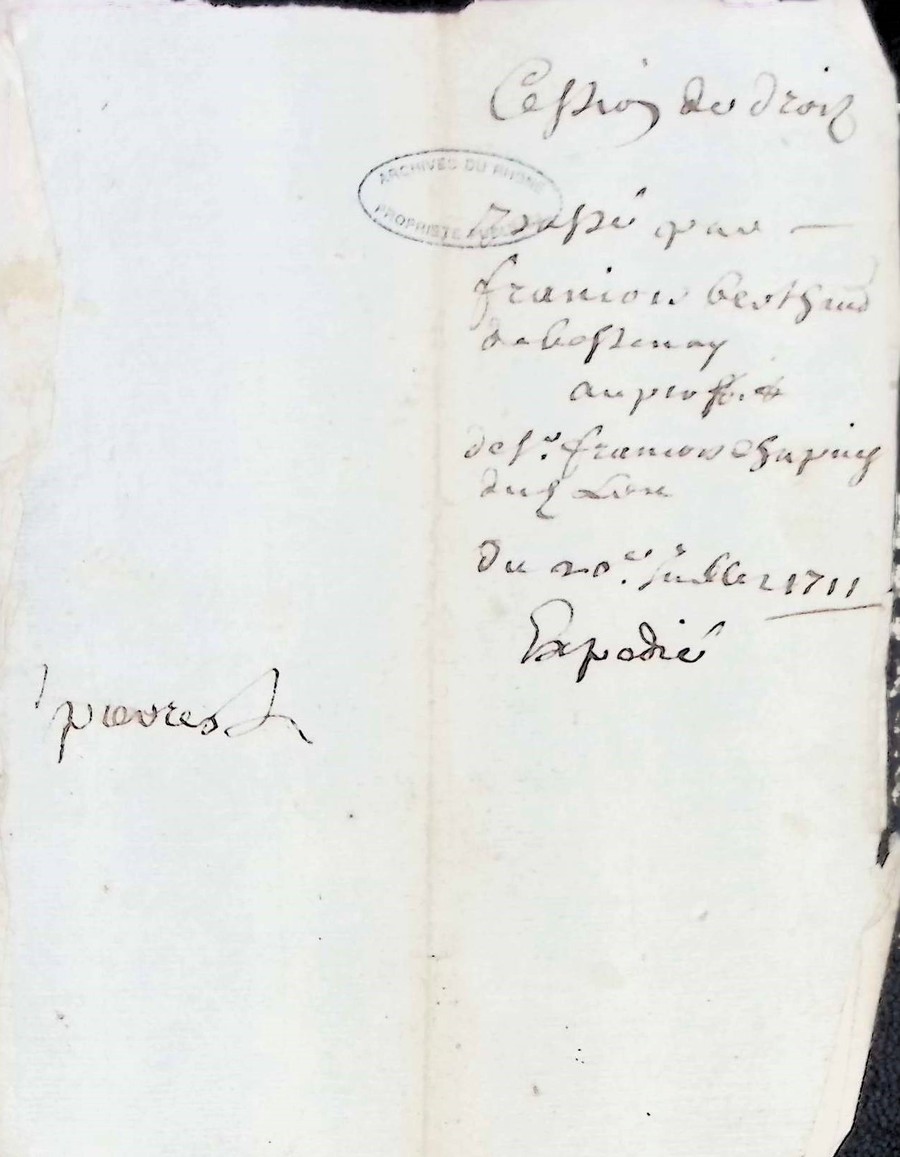 Cession de droit
ARCHIVES DU RHONE
PROPRIETE PUBLIQUE
Passé par —
francois berthaud
de
au proffit
de sr. francois Chapuis
dud Lieu
Du 20e. Juillet 1711
Expedié
1 pieures